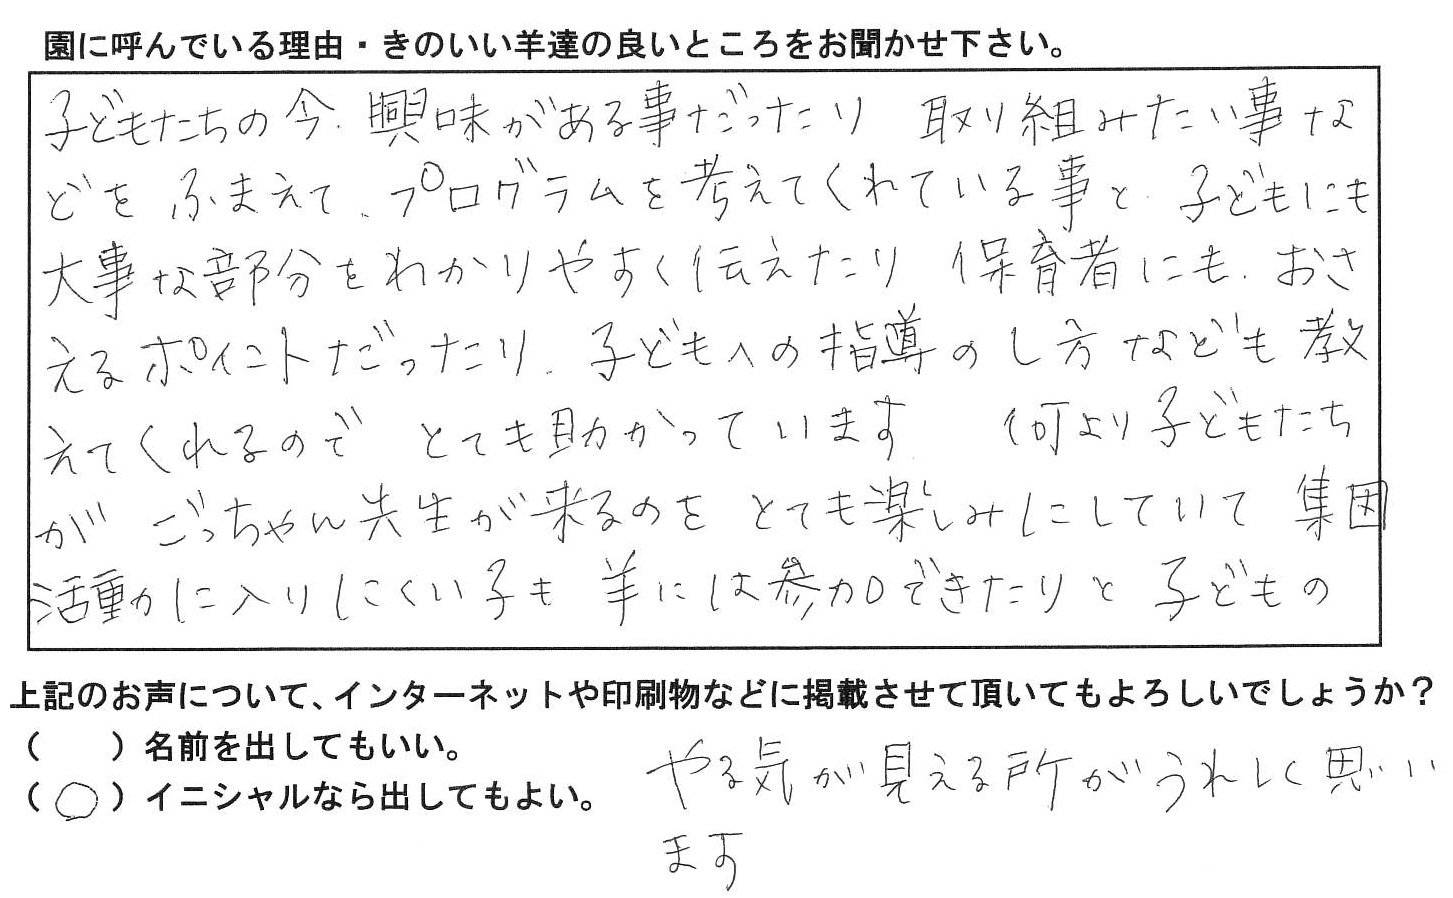 園に呼んでいる理由・きのいい羊達の良いところをお聞かせ下さい。
子どもたちの今、興味がある事だったり 取り組みたい事な
どを ふまえて、プログラムを考えてくれている事と、子どもにも
大事な部分をわかりやすく伝えたり 保育者にも、おさ
えるポイントだったり、子どもへの指導のし方なども教
えてくれるので とても助かっています 何より子どもたち
が ごっちゃん先生が来るのを とても楽しみにしていて 集団
活動に入りにくい子も 羊には参加できたりと 子どもの
上記のお声について、インターネットや印刷物などに掲載させて頂いてもよろしいでしょうか？
（　　）名前を出してもいい。
（ ○ ）イニシャルなら出してもよい。
やる気が見える所がうれしく思い
ます